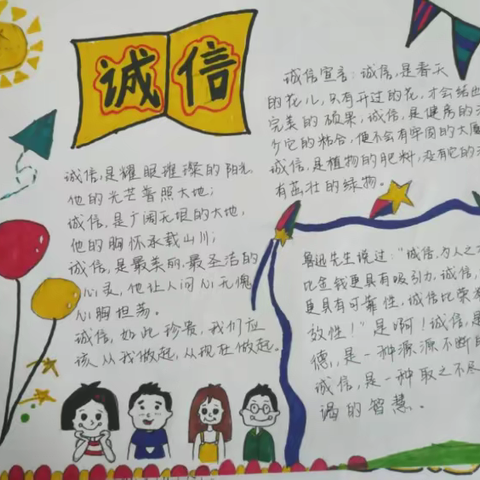 诚信
诚信,是耀眼璀璨的阳光,
他的光芒普照大地;
诚信,是广阔无垠的大地,
他的胸怀承载山川;
诚信,是最美丽、最圣洁的
心灵,他让人问心无愧
心胸坦荡。
诚信,如此珍贵,我们应
该从我做起,从现在做起。
诚信宣言:诚信,是春天
的花儿,只有开过的花,才会结出
完美的硕果,诚信,是健房的
个它的粘合,便不会有牢固的大厦
诚信,是植物的肥料,没有它的
有茁壮的绿物。
鲁迅先生说过:“诚信,为人之
比金钱更具有吸引力,诚信,
更具有可靠性,诚信比荣
效性!”是啊!诚信,是
德,是一种源源不断的
诚信,是一种取之不尽
竭的智慧。